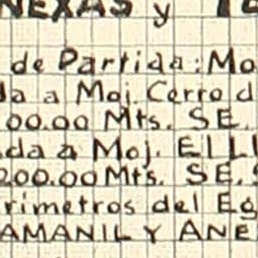 NEXAS y TE
de Partida: Mo
da a Moj. Cerro d
00.00 Mts. SE.
ada a Moj. ELLI
200.00 Mts. SE.S
rimetros del Eg
AMANIL Y ANE